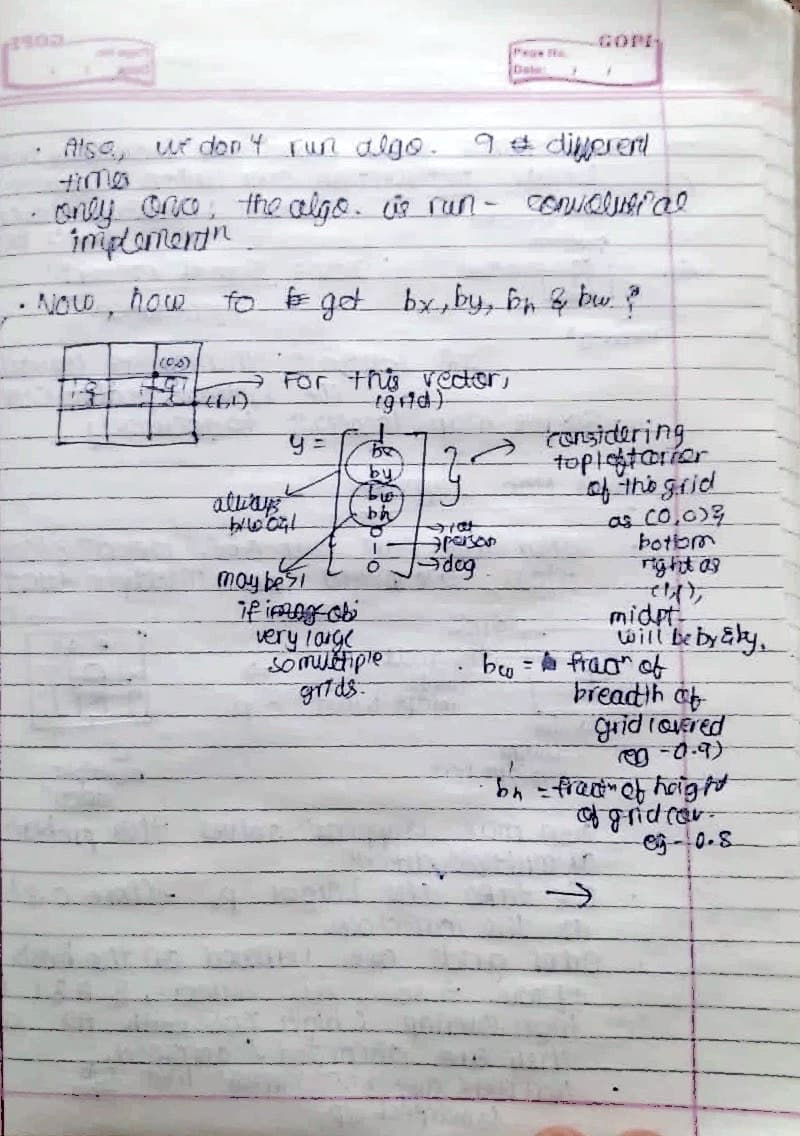 GOPI
Page No.
Date: / /
• Also, we don't run algo. 9 different
times
• only once, the algo. is run - convolutional
implementn.
• Now, how to get bx, by, bh & bw ?
(0,0)
(1,1)
→ For this vector,
(grid)
y =
1
bx
by
bw
bh
0 → car
1 → person
0 → dog
always
b/w 0&1
may be >1
if obj
very large
so multiple
grids.
→ considering
top left corner
of this grid
as (0,0) &
bottom
right as
(1,1),
midpt
will be bx & by.
• bw = fracn of
breadth of
grid covered
eg - 0.9)
• bh = fracn of height
of grid cov.
eg - 0.5
→